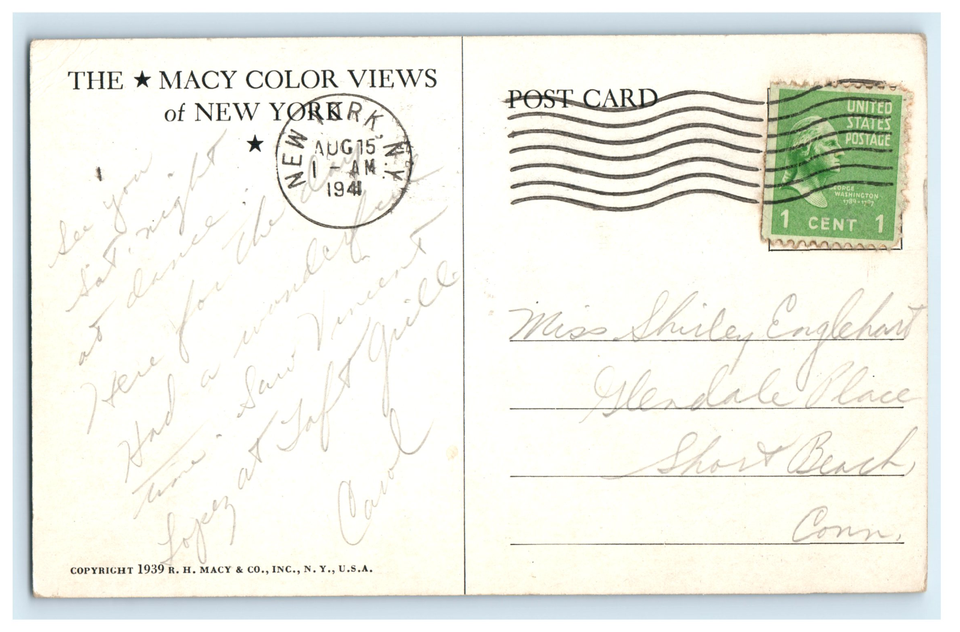 THE ★ MACY COLOR VIEWS
of NEW YORK
★
NEW YORK, N.Y.
AUG 15
1 - AM
1941
See you
Sat. night
at dance
Here for the day
Had a wonderful
time. Saw Vincent
Lopez at Taft Grill
Carol
COPYRIGHT 1939 R. H. MACY & CO., INC., N. Y., U.S.A.
POST CARD
UNITED
STATES
POSTAGE
GEORGE
WASHINGTON
1789-1797
1 CENT 1
Miss Shirley Englehart
Glendale Place
Short Beach,
Conn.